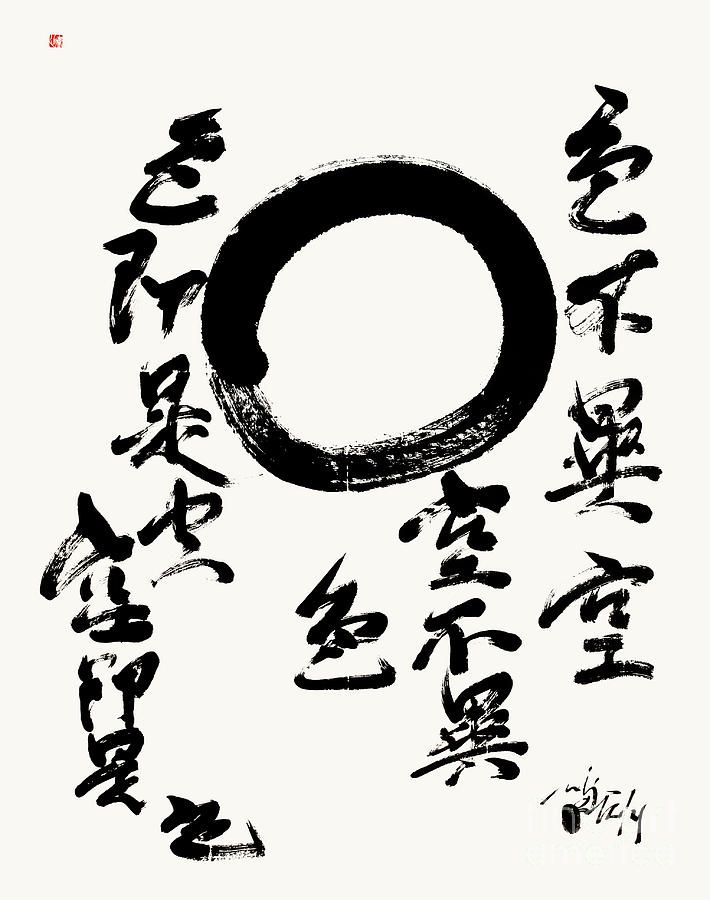 色不異空
空不異
色
色即是空
空即是
色